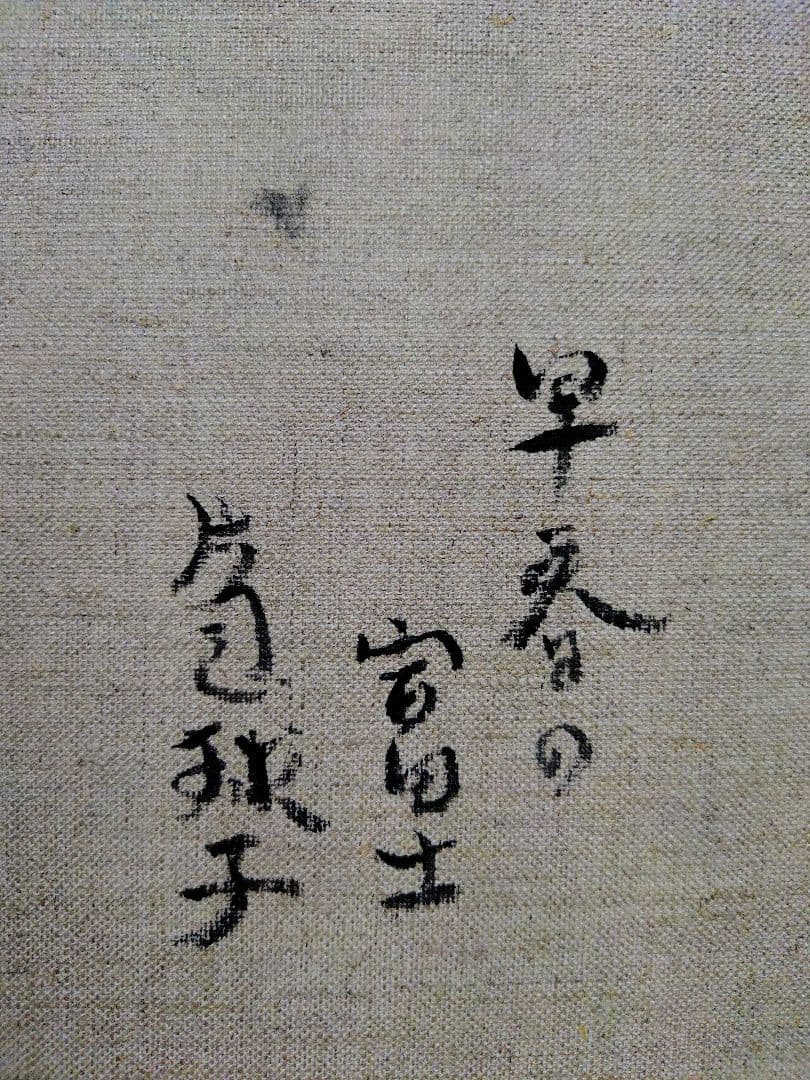 早春の
富士
片岡球子